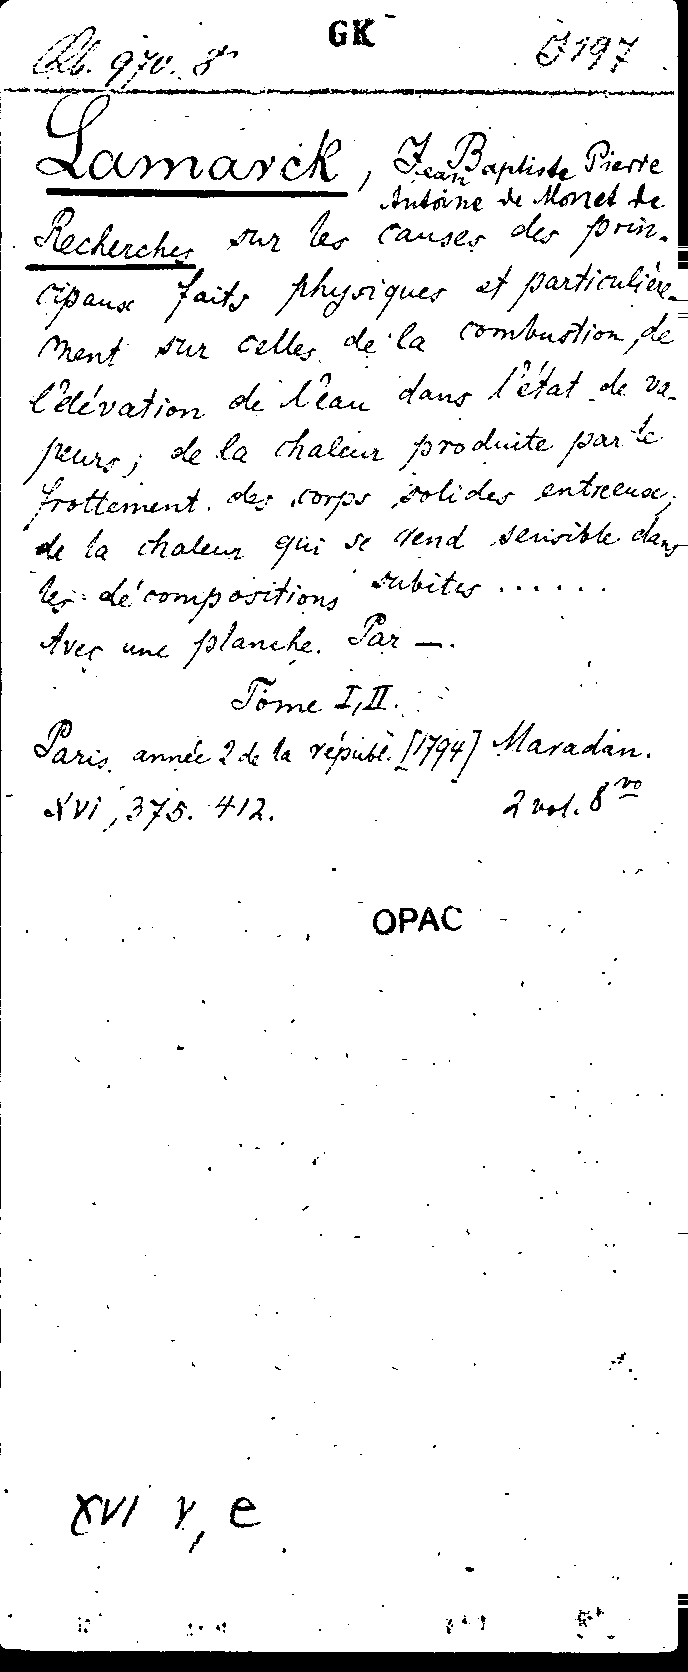 GK
Qb. 970. 8° J 197
Lamarck, Jean Baptiste Pierre
Antoine de Monet de
Recherches sur les causes des prin-
cipaux faits physiques et particulière-
ment sur celles de la combustion, de
l'élévation de l'eau dans l'état de va-
peurs; de la chaleur produite par le
frottement des corps solides entreeux;
de la chaleur qui se rend sensible dans
les décompositions subites ......
Avec une planche. Par —.
Tome I, II.
Paris, année 2 de la républ. [1794] Maradan.
XVI, 375. 412. 2 vol. 8vo
OPAC
XVI γ, e